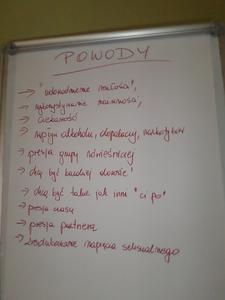 POWODY
→ "udowodnienie miłości",
→ wykorzystywanie naiwności,
→ ciekawość
→ wpływ alkoholu, dopalaczy, narkotyków
→ presja grupy rówieśniczej
→ chęć być bardziej dorosłe
→ chęć być takie jak inni "ci po"
→ presja czasu
→ presja partnera
→ zredukowanie napięcia seksualnego